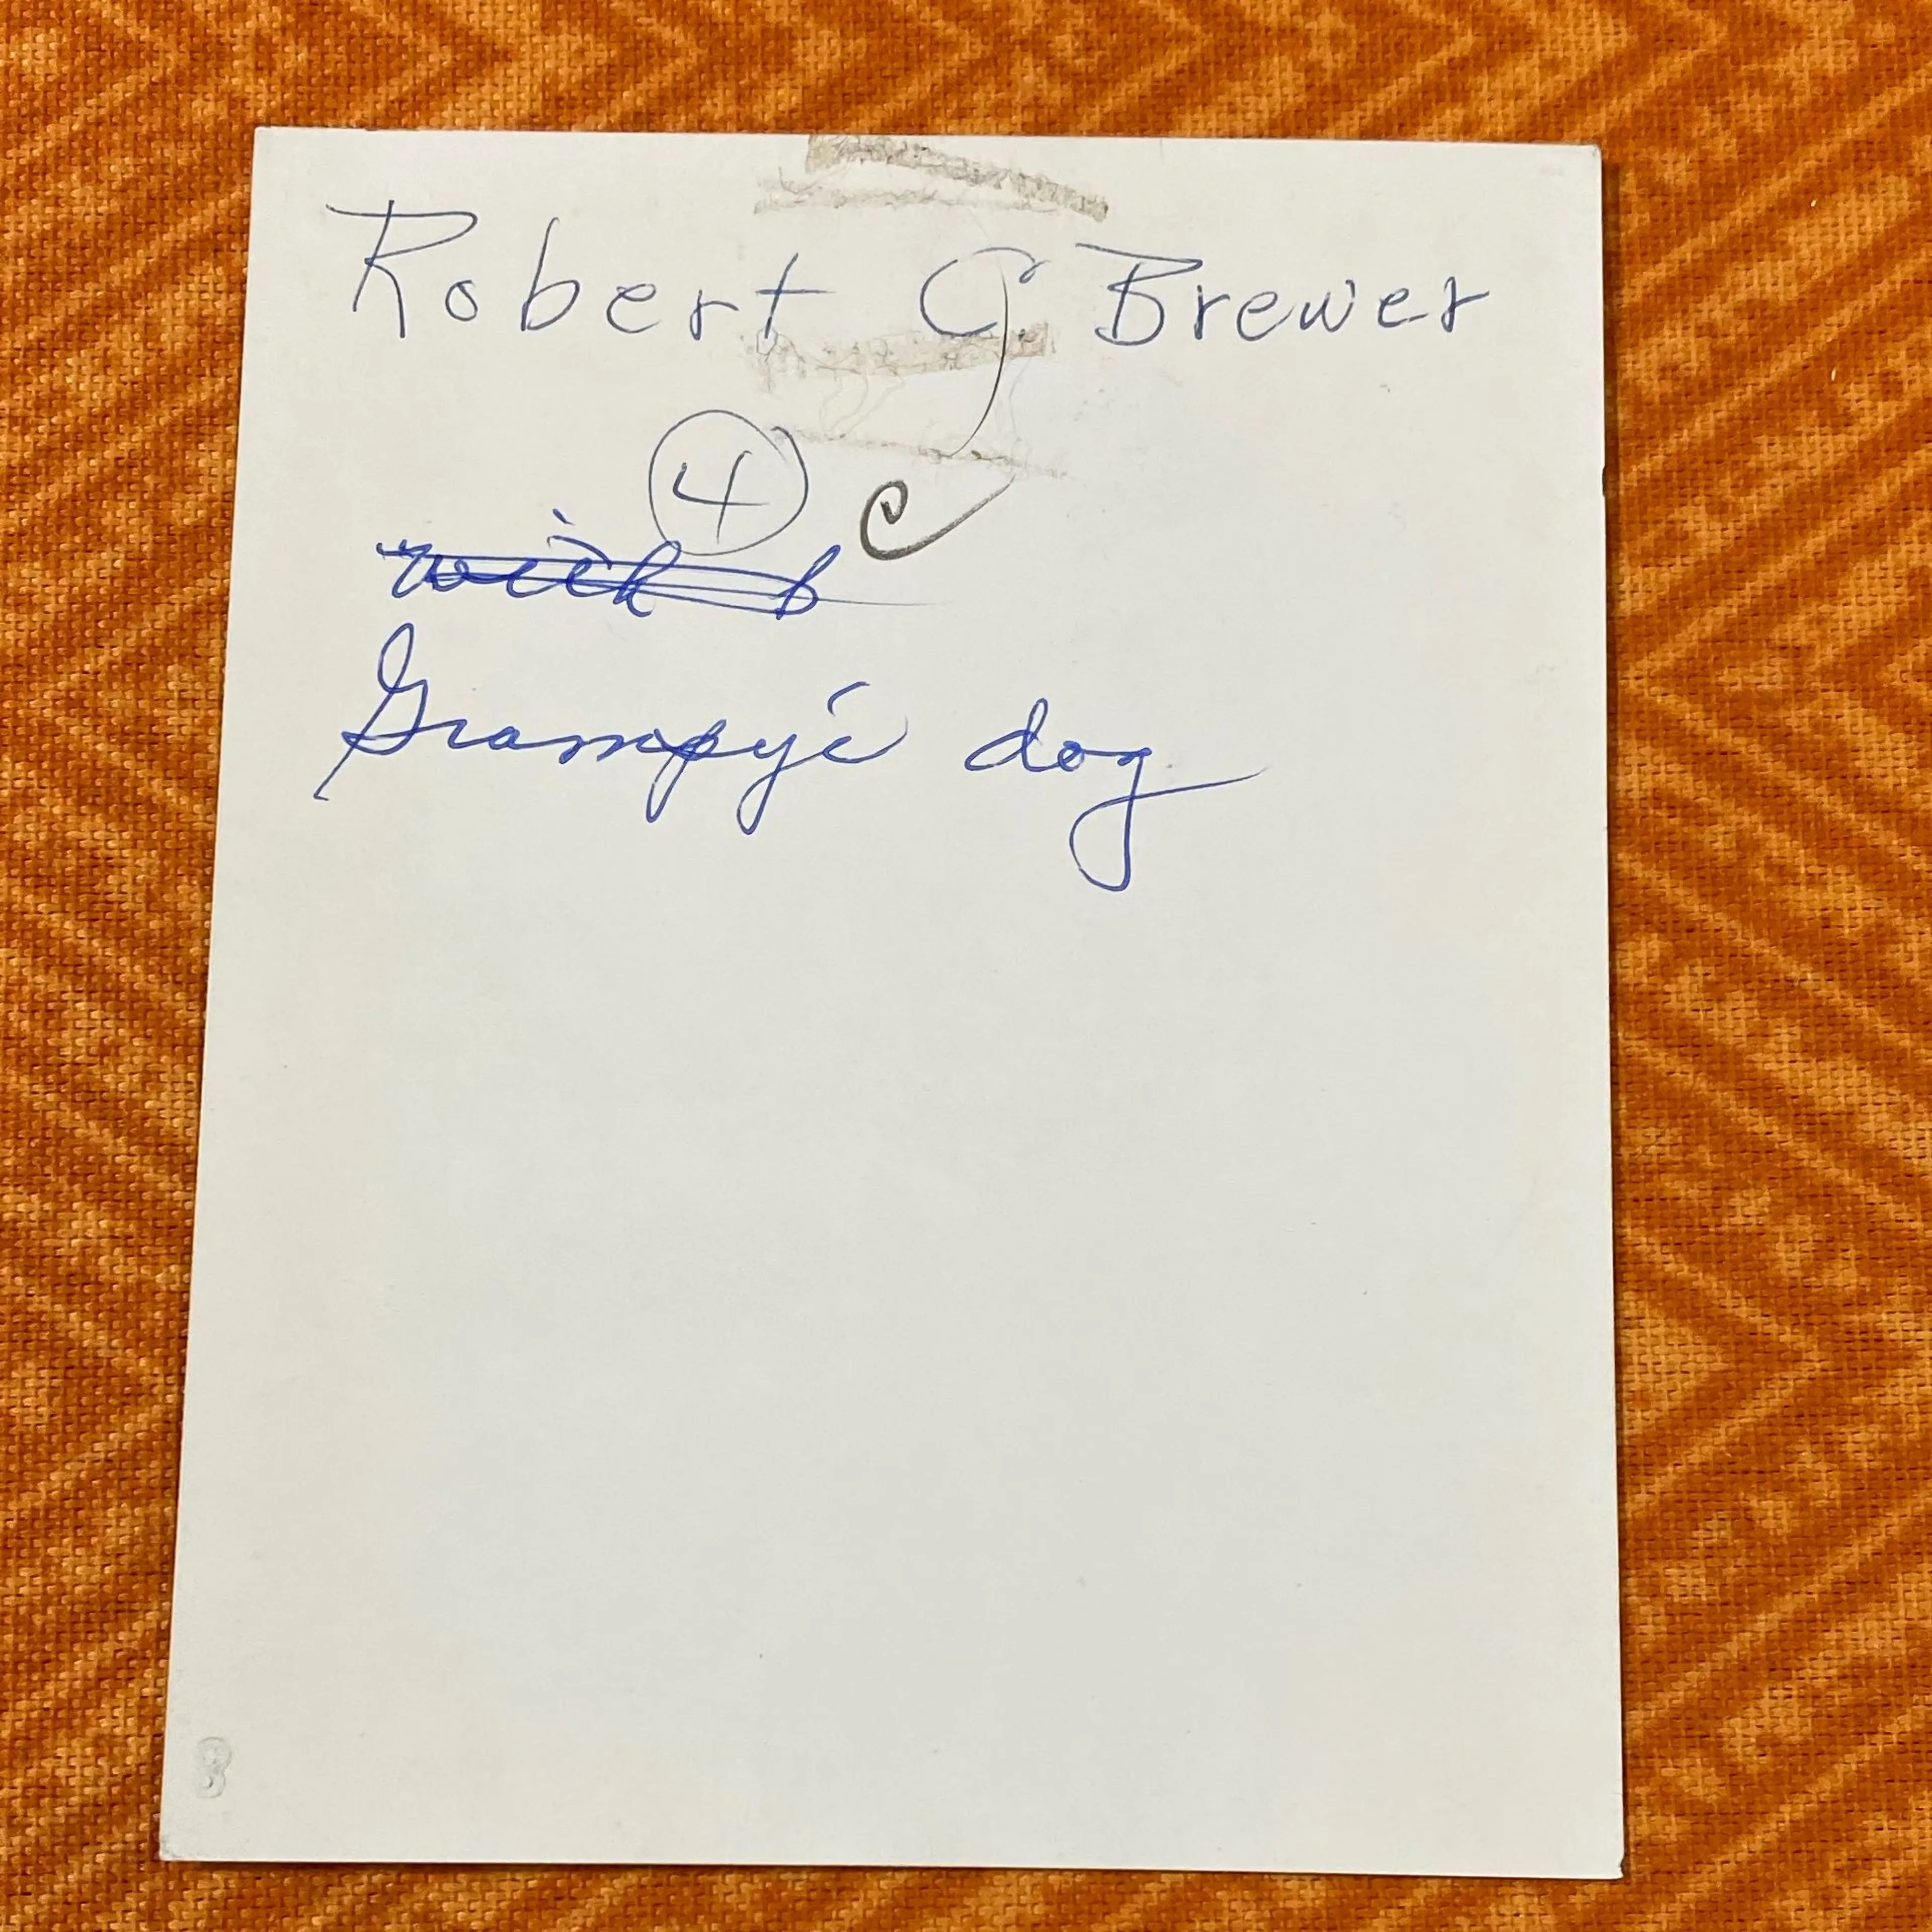 Robert G Brewer
4 C
with b
Grampy's dog
8